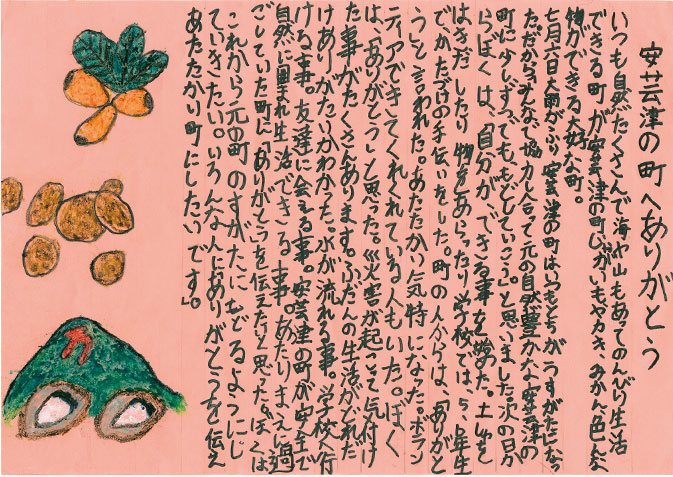 安芸津の町へありがとう
いつも自然たくさんで、海や山もあってのんびり生活
できる町が安芸津の町じゃがいもやカキ、みかん色んな
物ができる大好な町。
七月六日大雨がふり安芸津の町はいつもとちがうすがたになっ
ただから、みんなで協力し合って元の自然豊かな安芸津の
町に少しずつでももどしていこう。と思いました。次の日か
らぼくは、自分ができる事を始めた。土砂を
はきだしたり物をあらったり学校では、5、6年生
でかたづけの手伝いをした。町の人からは、「ありがと
う」と言われた。あたたかい気持になった。ボラン
ティアできてくれくれている人もいた。ぼく
は、「ありがとう」と思った。災害が起こって気付け
た事がたくさんあります。ふだんの生活がどれだ
けありがたいかわかった。水が流れる事。学校へ行
ける事。友達に会える事。安芸津の町が安全で
自然に囲まれ生活できる事。あたりまえに過
ごしていた町に「ありがとうを伝えたいと思った。ぼくは
これから元の町のすがたにもどるようにし
ていきたい。いろんな人にありがとうを伝え
あたたかい町にしたいです」。